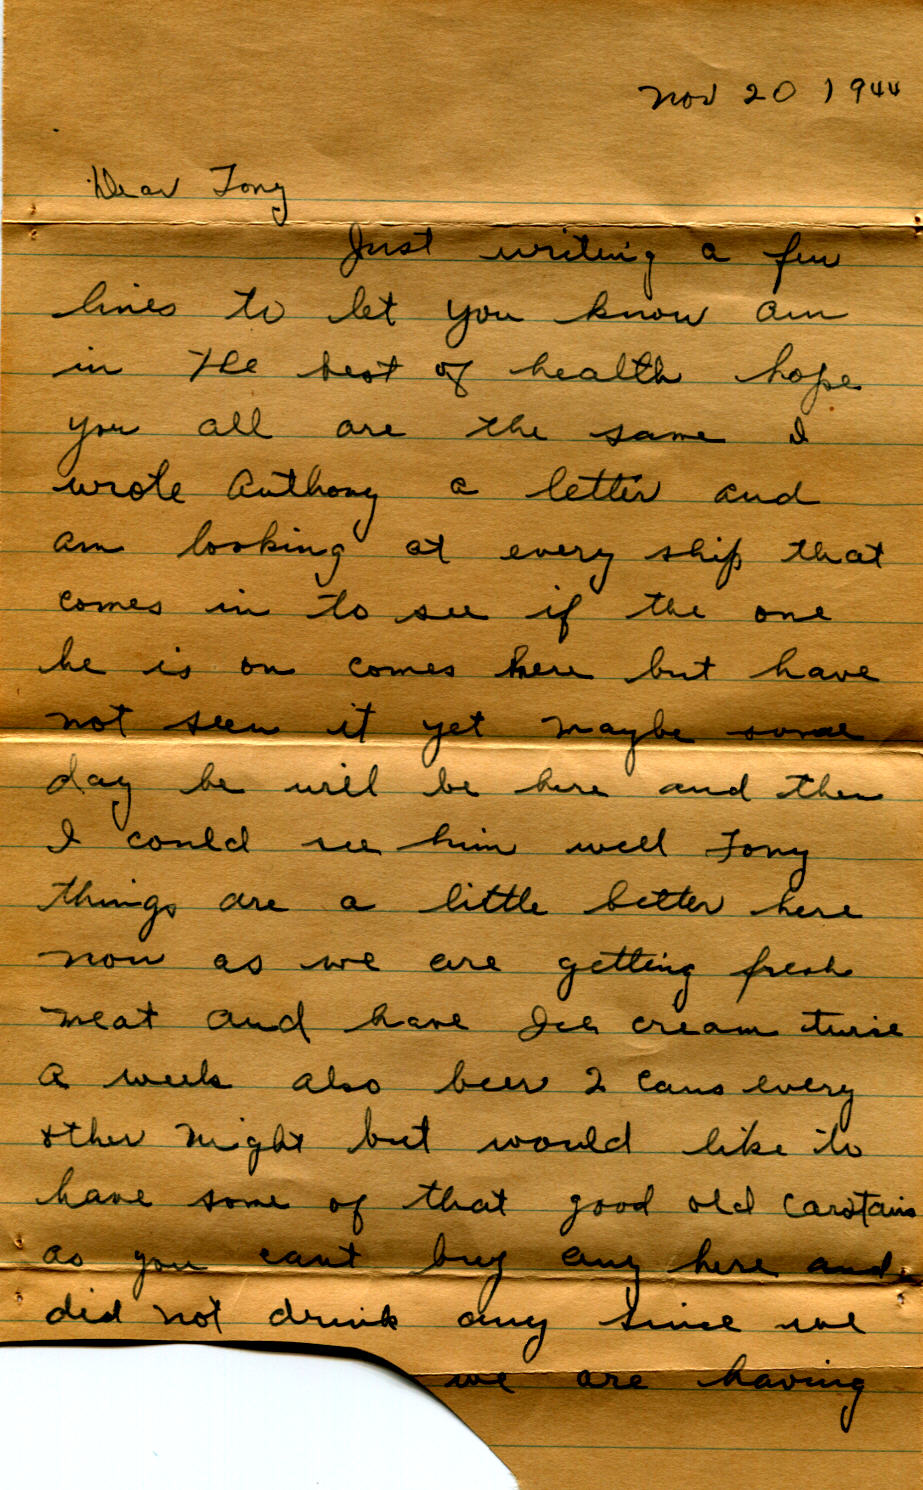 Nov 20 1944
Dear Tony
Just writing a few
lines to let you know am
in the best of health hope
you all are the same I
wrote Anthony a letter and
am looking at every ship that
comes in to see if the one
he is on comes here but have
not seen it yet maybe some
day he will be here and then
I could see him well Tony
things are a little better here
now as we are getting fresh
meat and have Ice cream twice
a week also beer 2 cans every
other night but would like to
have some of that good old Carstairs
as you cant buy any here and
did not drink any since we
we are having